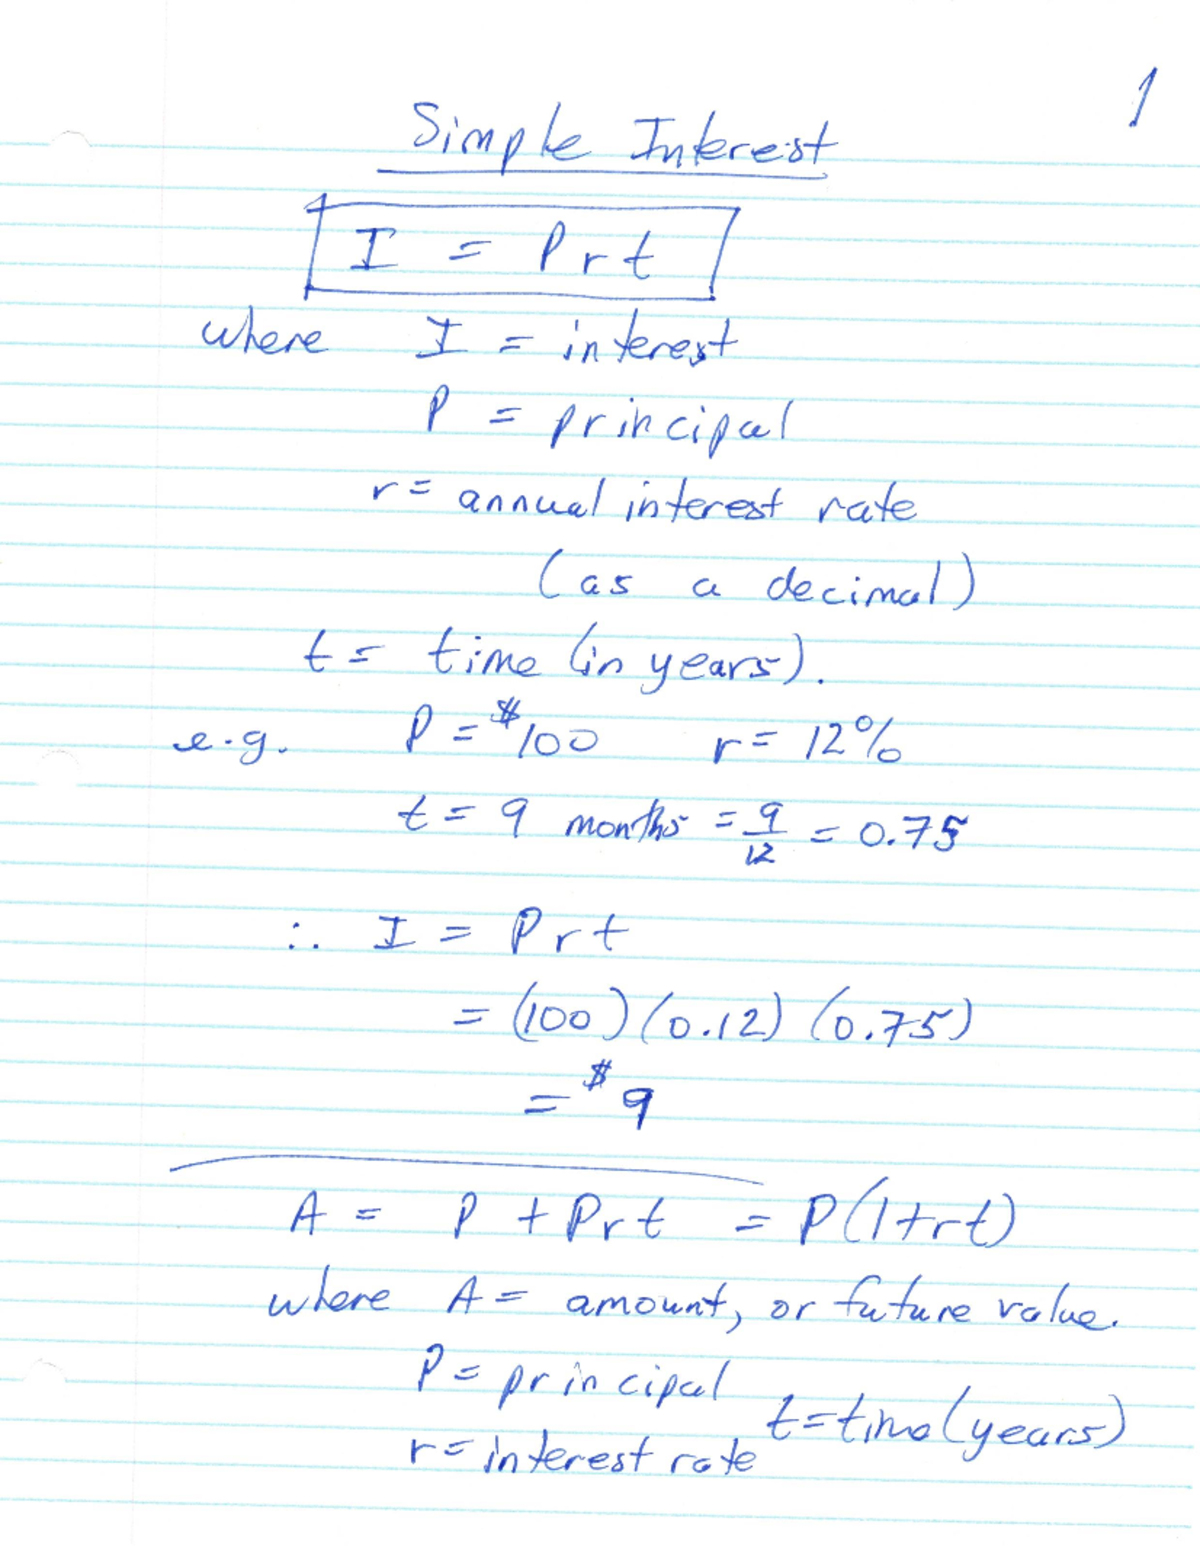 1
Simple Interest
I = Prt
where I = interest
P = principal
r = annual interest rate
(as a decimal)
t = time (in years).
e.g. P = $100 r = 12%
t = 9 months = 9/12 = 0.75
∴ I = Prt
= (100)(0.12)(0.75)
= $9
A = P + Prt = P(1+rt)
where A = amount, or future value.
P = principal
t = time (years)
r = interest rate